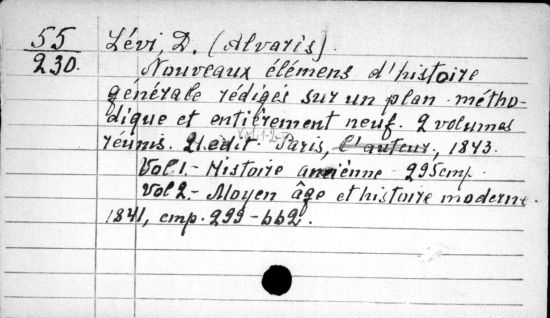 55 Lévi, D. (Alvarès).
230. Nouveaux élémens d'histoire
générale rédigés sur un plan métho-
dique et entièrement neuf. 2 volumes
réunis. 21 edit. Paris, l'auteur, 1843.
Vol 1.- Histoire ancienne 295 cmp.
Vol 2.- Moyen âge et histoire moderne.
1841, cmp. 299-662.